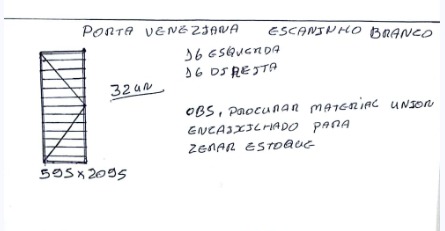 PORTA VENEZIANA ESCANINHO BRANCO
16 ESQUERDA
16 DIREITA
32 UN
OBS, PROCURAR MATERIAL UNION
ENCAIXILHADO PARA
ZERAR ESTOQUE
595 x 2095